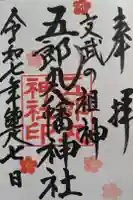 奉拝
文武の祖神
五郎丸八幡神社
令和七年